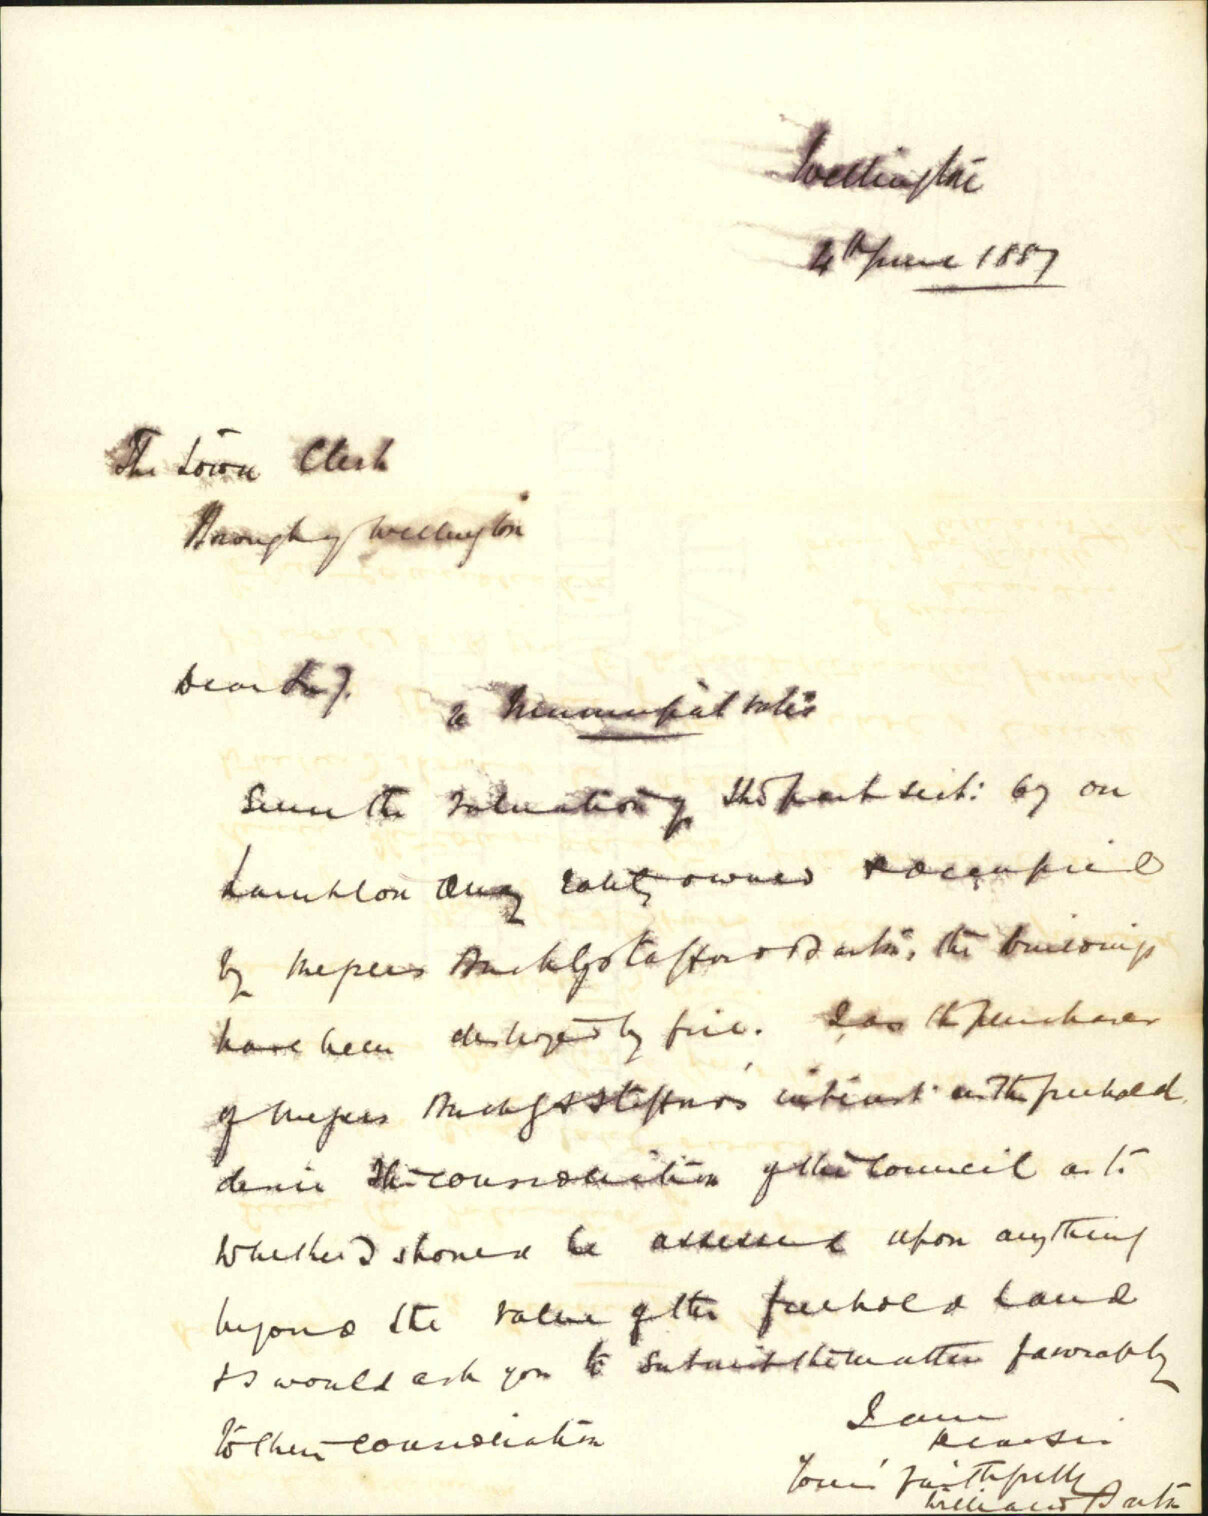 Wellington
4th June 1887
The Town Clerk
Borough of Wellington
Dear Sir,
re Municipal rates
Since the valuation of the part sect: 67 on
Lambton Quay lately owned & occupied
by Messrs & Barton, the buildings
have been destroyed by fire. I as the purchaser
of Messrs interest in the freehold
desire the consideration of the Council as to
whether I should be assessed upon anything
beyond the value of the freehold land
& I would ask you to submit the matter favorably
to their consideration
I am
Dear Sir
Yours faithfully
William Barton